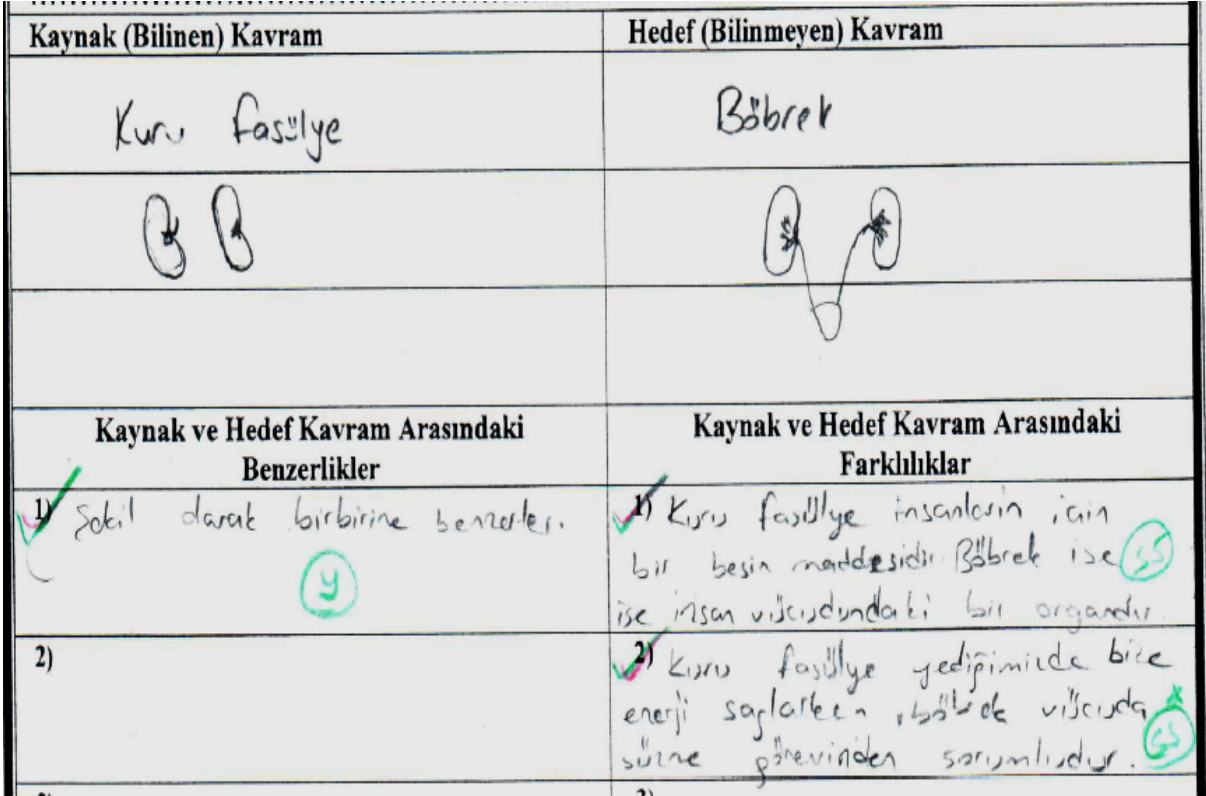 Kaynak (Bilinen) Kavram
Hedef (Bilinmeyen) Kavram
Kuru fasülye
Böbrek
Kaynak ve Hedef Kavram Arasındaki
Benzerlikler
Kaynak ve Hedef Kavram Arasındaki
Farklılıklar
1) Şekil olarak birbirine benzerler.
y
1) Kuru fasülye insanların için
bir besin maddesidir. Böbrek ise
ise insan vücudundaki bir organdır.
2)
2) Kuru fasülye yediğimizde bize
enerji sağlarken, böbrek vücuda
süzme görevinden sorumludur.